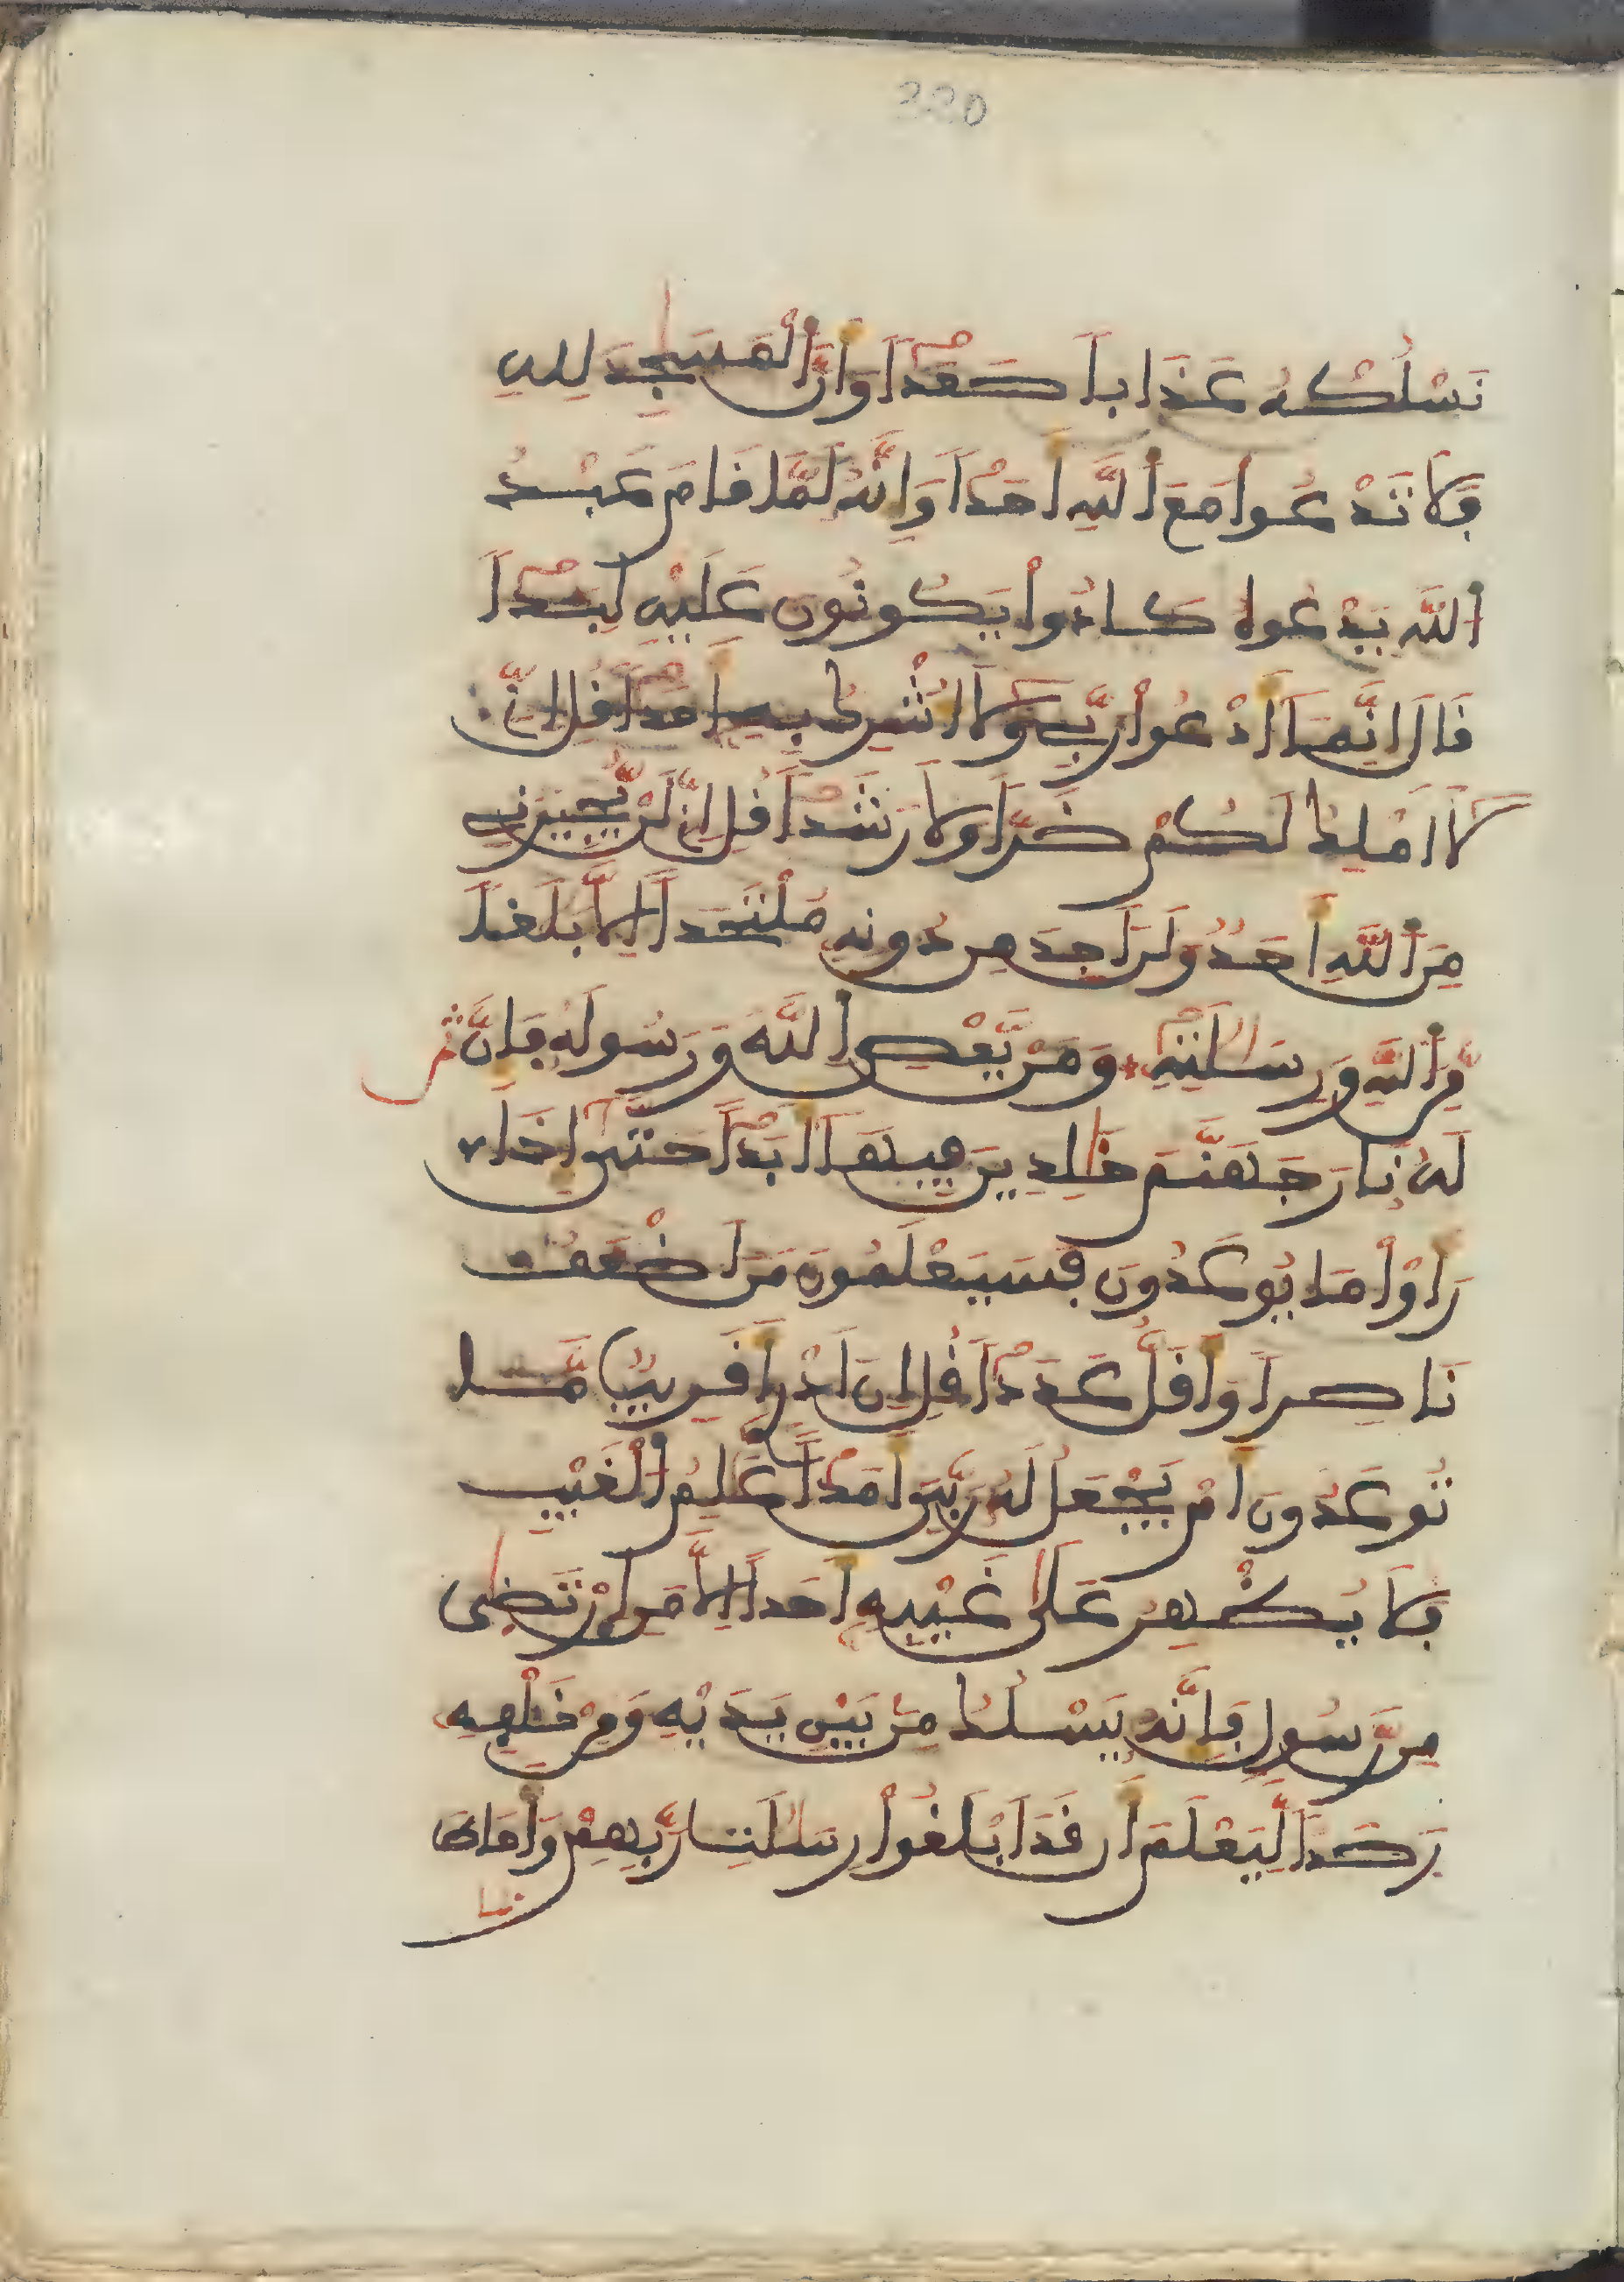 220
نَسْلُكْهُ عَذَاباً صَعَداً وَأَنَّ ٱلْمَسَٰجِدَ لِلهِ
فَلَا تَدْعُوا مَعَ ٱللَّهِ أَحَداً وَإِنَّهُ لَمَّا فَامَ عَبْدُ
ٱللَّهِ يَدْعُوهُ كَادُوا۟ يَكُونُونَ عَلَيْهِ لِبَداً
فَالَ إِنَّمَا أَدْعُوا۟ رَبِّے وَلَا أُشْرِكُ بِهِ أَحَداً فُلِ انِّے
لَا أَمْلِكُ لَكُمْ ضَرّاً وَلَا رَشَداً فُلِ انِّے لَنْ يُّجِيرَنِے
مِنَ ٱللَّهِ أَحَدٌ وَلَنَ اَجِدَ مِن دُونِهِ مُلْتَحَداً اِلَّا بَلَٰغاً
مِّنَ ٱللَّهِ وَرِسَٰلَٰتِهِ وَمَنْ يَّعْصِ ٱللَّهَ وَرَسُولَهُ فَإِنَّ ثمن
لَهُ نَارَ جَهَنَّمَ خَٰلِدِينَ فِيهَا أَبَداً حَتَّىٰ إِذَا
رَأَوْا۟ مَا يُوعَدُونَ فَسَيَعْلَمُونَ مَنَ اَضْعَفُ
نَاصِراً وَأَفَلُّ عَدَداً فُلِ اِنَ اَدْرِے أَفَرِيبٌ مَّا
تُوعَدُونَ أَمْ يَجْعَلُ لَهُ رَبِّىَ أَمَداً عَٰلِمُ ٱلْغَيْبِ
فَلَا يُظْهِرُ عَلَىٰ غَيْبِهِ أَحَداً اِلَّا مَنِ ٱرْتَضَىٰ
مِن رَّسُولٍ فَإِنَّهُ يَسْلُكُ مِنْ بَيْنِ يَدَيْهِ وَمِنْ خَلْفِهِ
رَصَداً لِّيَعْلَمَ أَن فَدَ اَبْلَغُوا۟ رِسَٰلَٰتِ رَبِّهِمْ وَأَحَاطَ